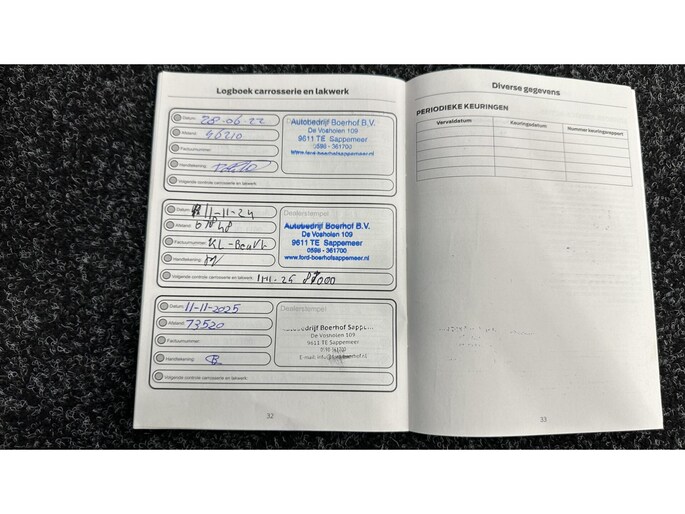 Logboek carrosserie en lakwerk
Datum: 28-06-22
Afstand: 46210
Factuurnummer:
Handtekening:
Volgende controle carrosserie en lakwerk:
Autobedrijf Boerhof B.V.
De Vosholen 109
9611 TE Sappemeer
0598 - 361700
www.ford-boerhofsappemeer.nl
Datum: 11-11-24
Afstand:
Factuurnummer:
Handtekening:
Volgende controle carrosserie en lakwerk:
Dealerstempel
Autobedrijf Boerhof B.V.
De Vosholen 109
9611 TE Sappemeer
0598 - 361700
www.ford-boerhofsappemeer.nl
Datum: 11-11-2025
Afstand: 73520
Factuurnummer:
Handtekening:
Volgende controle carrosserie en lakwerk:
Dealerstempel
Autobedrijf Boerhof Sappem
De Vosholen 109
9611 TE Sappemeer
E-mail:
32
Diverse gegevens
PERIODIEKE KEURINGEN
Vervaldatum Keuringsdatum Nummer keuringsrapport
33